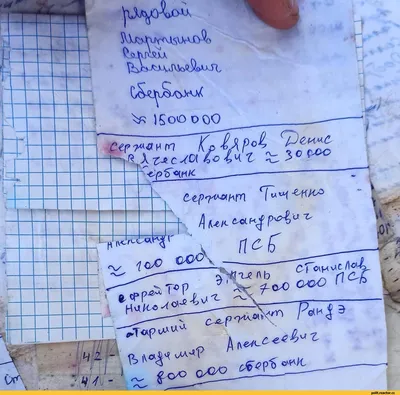 рядовой
Мартынов
Сергей
Васильевич
Сбербанк
≈ 1500000
сержант Ковяров Денис
Вячеславович ≈ 30000
ербанк
сержант Тищенко
Александрович
Александ
≈ 100 000 ПСБ
ефрейтор Энгель Станислав
Николаевич ≈ 700 000 ПСБ
тарший сержант Рандэ
Владимир Алексеевич
≈ 800 000 сбербанк
42
41.-